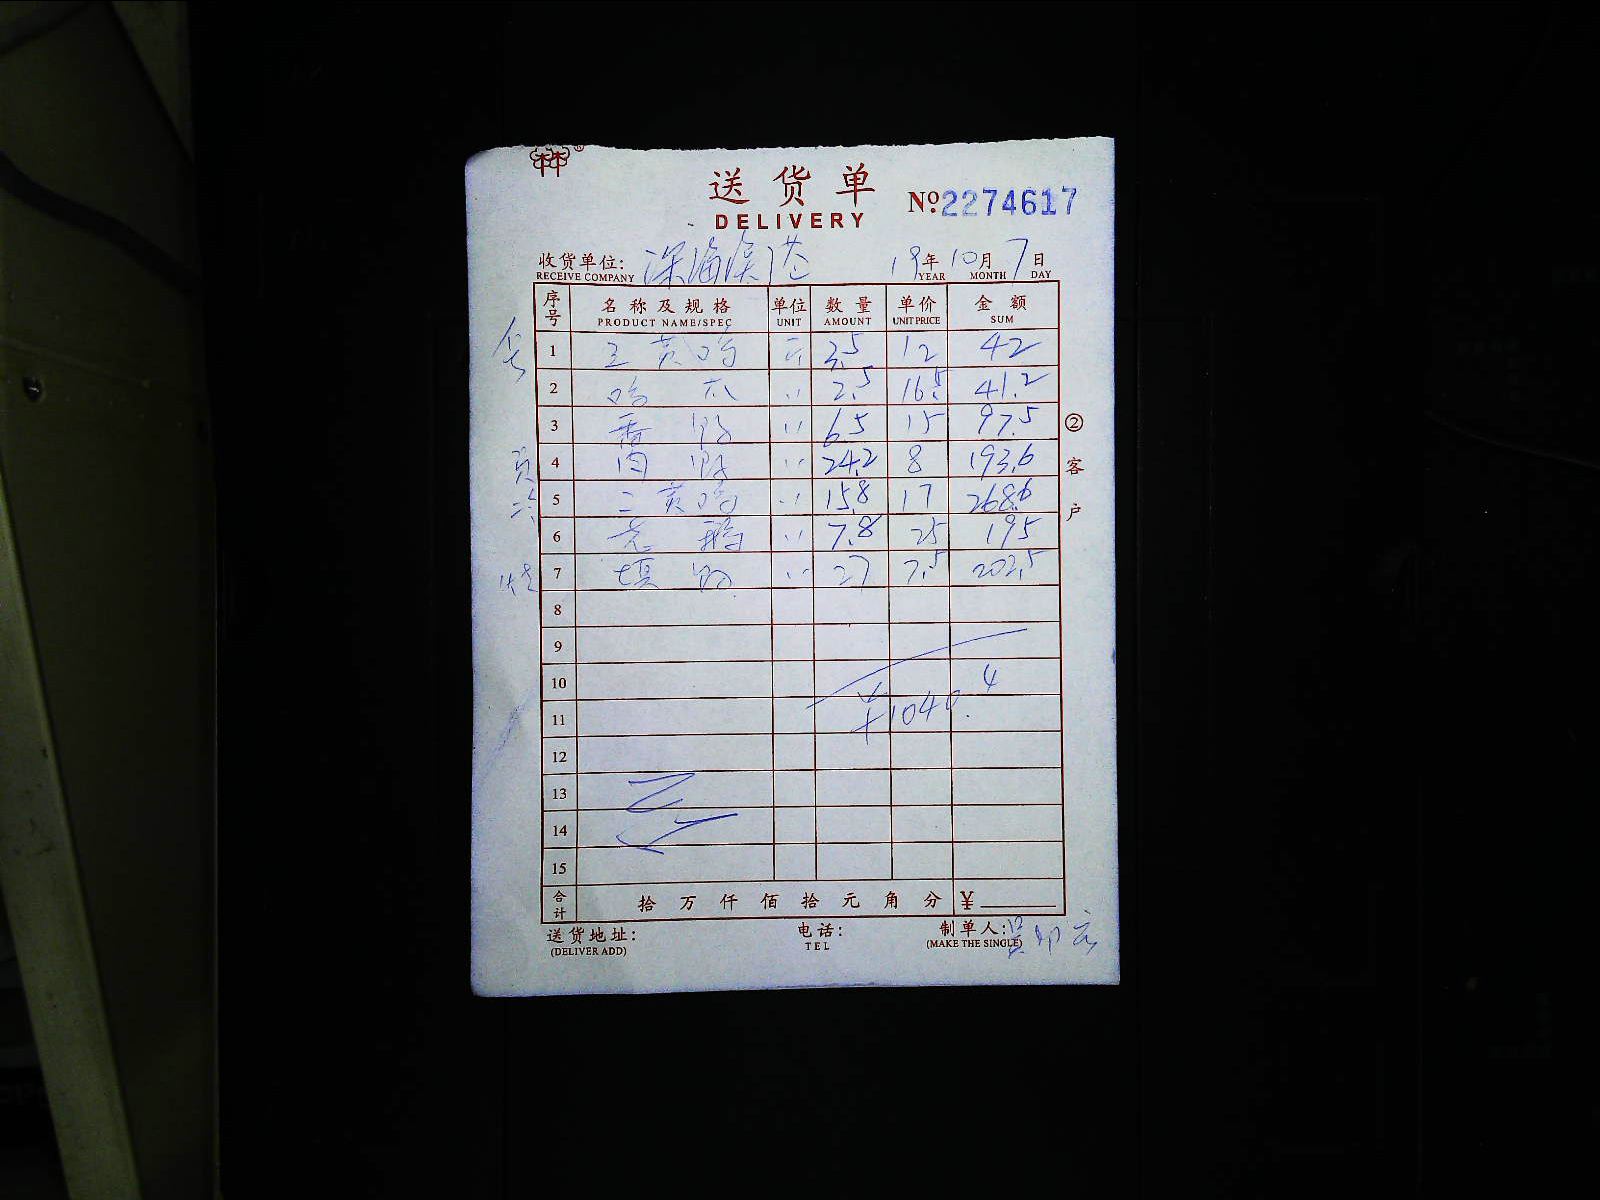 林®
送货单
DELIVERY
No.2274617
收货单位: 深海渔港 19年10月7日
RECEIVE COMPANY YEAR MONTH DAY
序号 名称及规格 单位 数量 单价 金额
PRODUCT NAME/SPEC UNIT AMOUNT UNIT PRICE SUM
1 三黄鸡 斤 3.5 12 42
2 鸡 爪 〃 2.5 16.5 41.2
3 番鸭 〃 6.5 15 97.5
4 肉鸭 〃 24.2 8 193.6
5 二黄鸡 〃 15.8 17 268.6
6 老鹅 〃 7.8 25 195
7 填鸭 〃 27 7.5 202.5
8
9
10
¥1040.4
11
12
13
14
15
合计 拾 万 仟 佰 拾 元 角 分 ¥
送货地址: 电话: 制单人:
(DELIVER ADD) TEL (MAKE THE SINGLE)
②客户